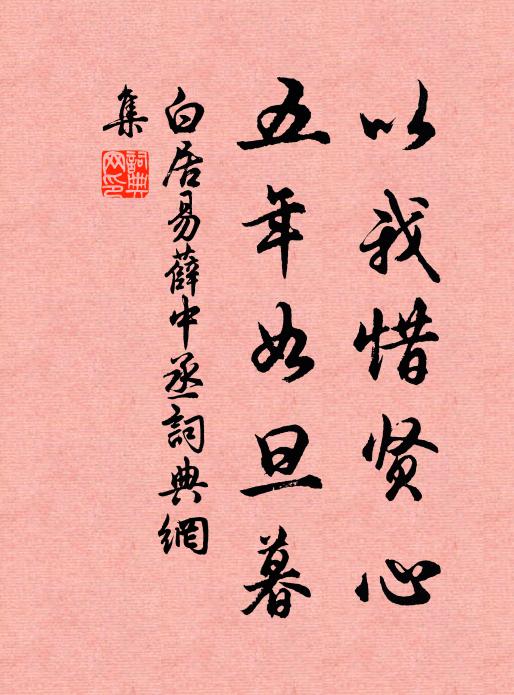 以我惜贤心
五年如旦暮
白居易薛中丞詞典網
集
詞典
网印